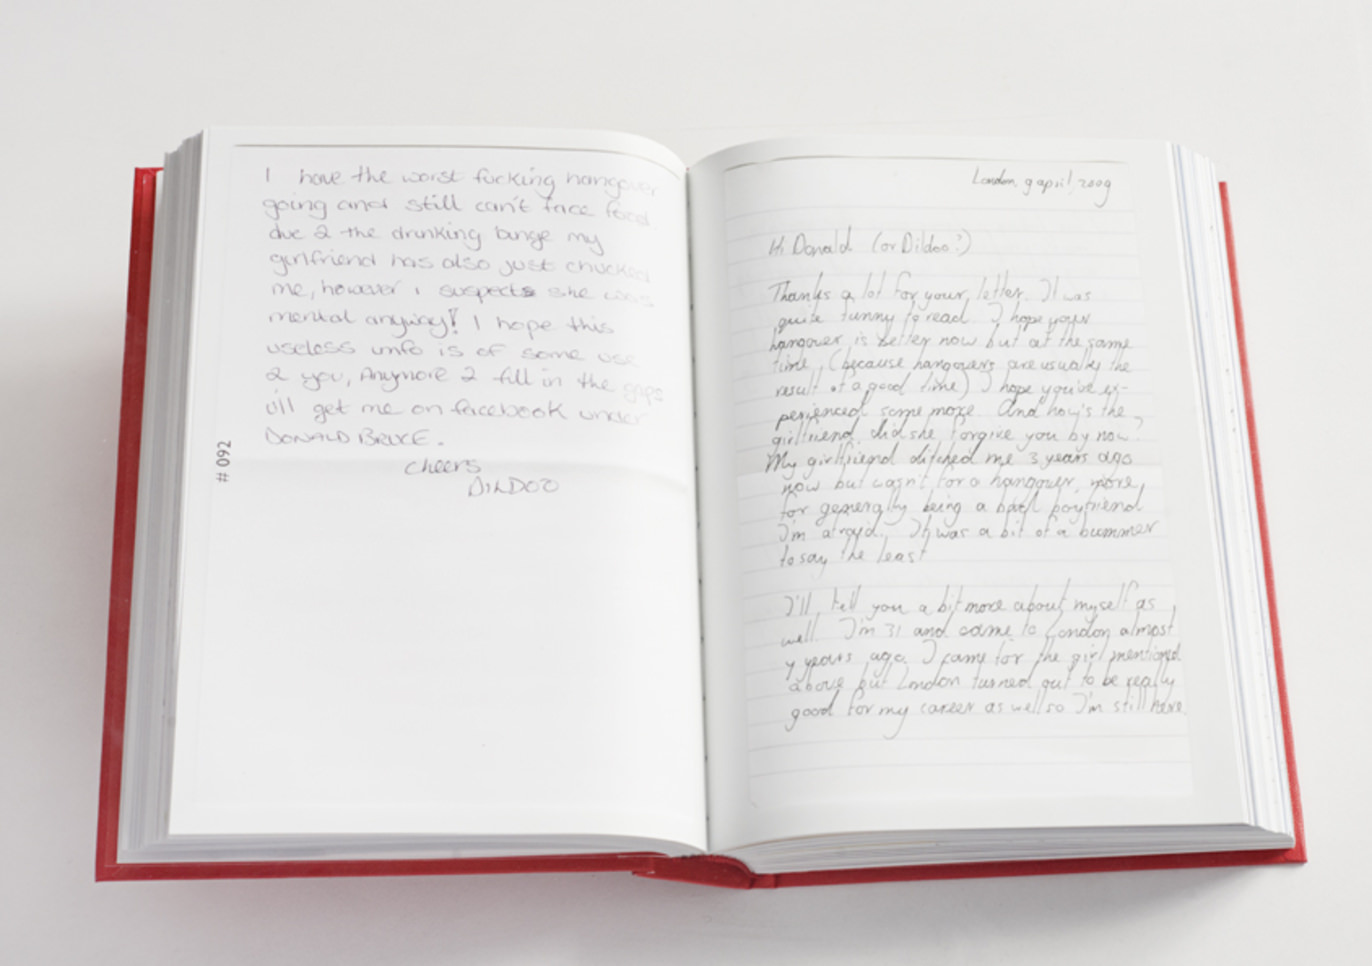 I have the worst fucking hangover
going and still can't face food
due 2 the drinking binge my
girlfriend has also just chucked
me, however i suspects she was
mental anyway! I hope this
useless info is of some use
2 you, Anymore 2 fill in the gaps
u'll get me on facebook under
DONALD BRUCE.
cheers
DILDOO
# 092
London, 9 april, 2009
Hi Donald (or Dildoo?)
Thanks a lot for your letter. It was
quite funny to read. I hope your
hangover is better now but at the same
time, (because hangovers are usually the
result of a good time) I hope you've ex-
perienced some more. And how's the
girlfriend, did she forgive you by now?
My girlfriend ditched me 3 years ago
now but wasn't for a hangover, more
for generally being a bad boyfriend
I'm afraid. It was a bit of a bummer
to say the least
I'll tell you a bit more about myself as
well. I'm 31 and came to London almost
4 years ago. I came for the girl mentioned
above but London turned out to be really
good for my career as well so I'm still here.